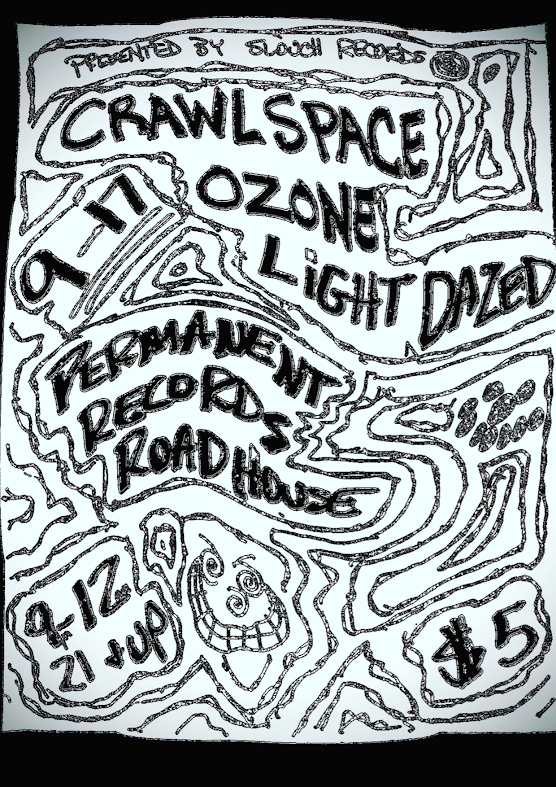 PRESENTED BY SLOUCH RECORDS
CRAWLSPACE
OZONE
LiGHT DAZED
9-17
PERMANENT
RECORDS
ROADHOUSE
9-12
21 + UP
$5